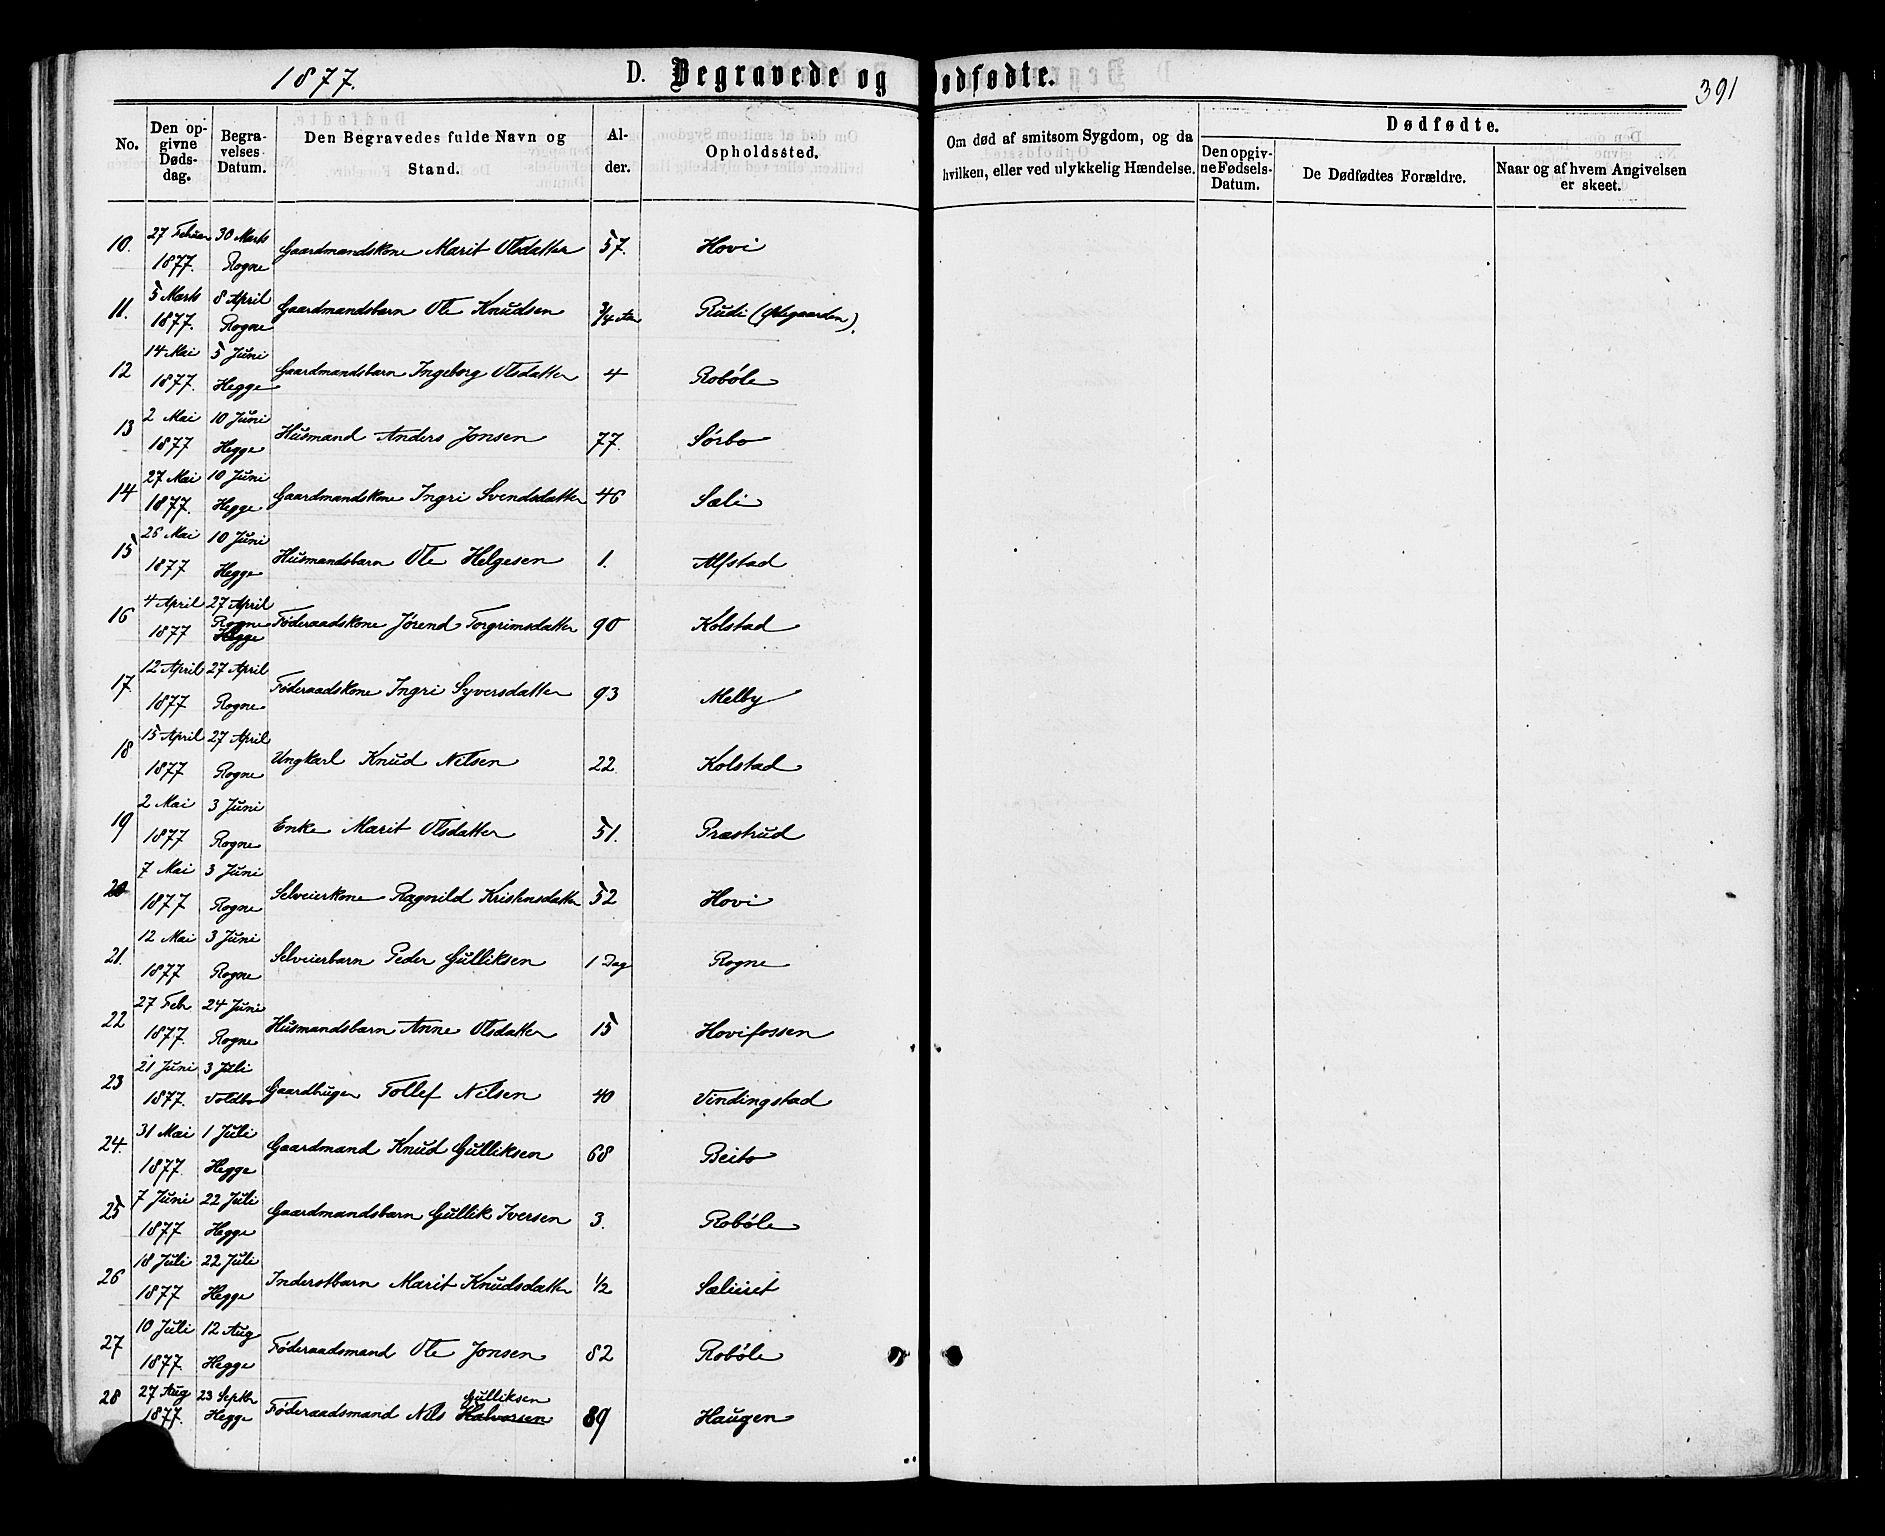 1877.
D. Begravede og Dødfødte.
391
No.
Den opgivne Dødsdag.
Begravelses Datum.
Den Begravedes fulde Navn og Stand.
Alder.
Opholdssted.
Om død af smitsom Sygdom, og da hvilken, eller ved ulykkelig Hændelse.
Dødfødte.
Den opgivne Fødsels-Datum.
De Dødfødtes Forældre.
Naar og af hvem Angivelsen er skeet.
10. 27 Februar 1877. 30 Marts Rogne Gaardmandskone Marit Olsdatter 57. Hovi
11. 5 Marts 1877. 8 April Rogne Gaardmandsbarn Ole Knudsen 3/4 Aar Rudi (Ødegaarden).
12 14 Mai 1877. 5 Juni Hegge Gaardmandsbarn Ingeborg Olsdatter 4 Robøle
13 2 Mai 1877 10 Juni Hegge Husmand Anders Jonsen 77. Sørbo
14 27 Mai 1877. 10 Juni Hegge Gaardmandskone Ingri Svendsdatter 46 Sæli
15 26 Mai 1877 10 Juni Hegge Husmandsbarn Ole Helgesen 1. Alfstad
16 4 April 1877 27 April Rogne Hegge Føderaadskone Jørend Torgrimsdatter 90 Kolstad
17 12 April 1877 27 April Rogne Føderaadskone Ingri Syversdatter 93 Melby
18 15 April 1877 27 April Rogne Ungkarl Knud Nilsen 22. Kolstad
19 2 Mai 1877 3 Juni Rogne Enke Marit Olsdatter 51. Præstrud
20 7 Mai 1877 3 Juni Rogne Selveierkone Ragnild Kristensdatter 52 Hovi
21. 12 Mai 1877 3 Juni Rogne Selveierbarn Peder Gulliksen 1 Dag Rogne
22 27 Feb 1877. 24 Juni Rogne Husmandsbarn Anne Olsdatter 15 Hovifossen
23 21 Juni 1877. 3 Juli Voldbo Gaardbruger Tollef Nilsen 40 Vindingstad
24. 31 Mai 1877. 1 Juli Hegge Gaardmand Knud Gulliksen 68 Beito
25 7 Juni 1877 22 Juli Hegge Gaardmandsbarn Gullik Iversen 3. Robøle
26 18 Juli 1877 22 Juli Hegge Inderstbarn Marit Knudsdatter 1/2
27 10 Juli 1877. 12 Aug Hegge Føderaadsmand Ole Jonsen 82 Robøle
28 27 Aug 1877. 23 Septbr Hegge Føderaadsmand Nils Halvorsen Gulliksen 89 Haugen